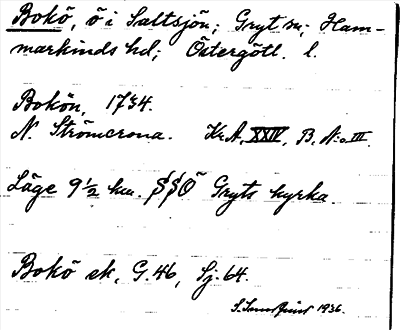 Bokö, ö i Saltsjön; Gryt sn; Ham-
markinds hd; Östergötl. l.
Bokön, 1734.
N. Strömcrona. Kr.A. XXIV, B, N:o III.
Läge 9½ km. SSO Gryts kyrka.
Bokö ek, G. 46, Sj. 64.
1936.